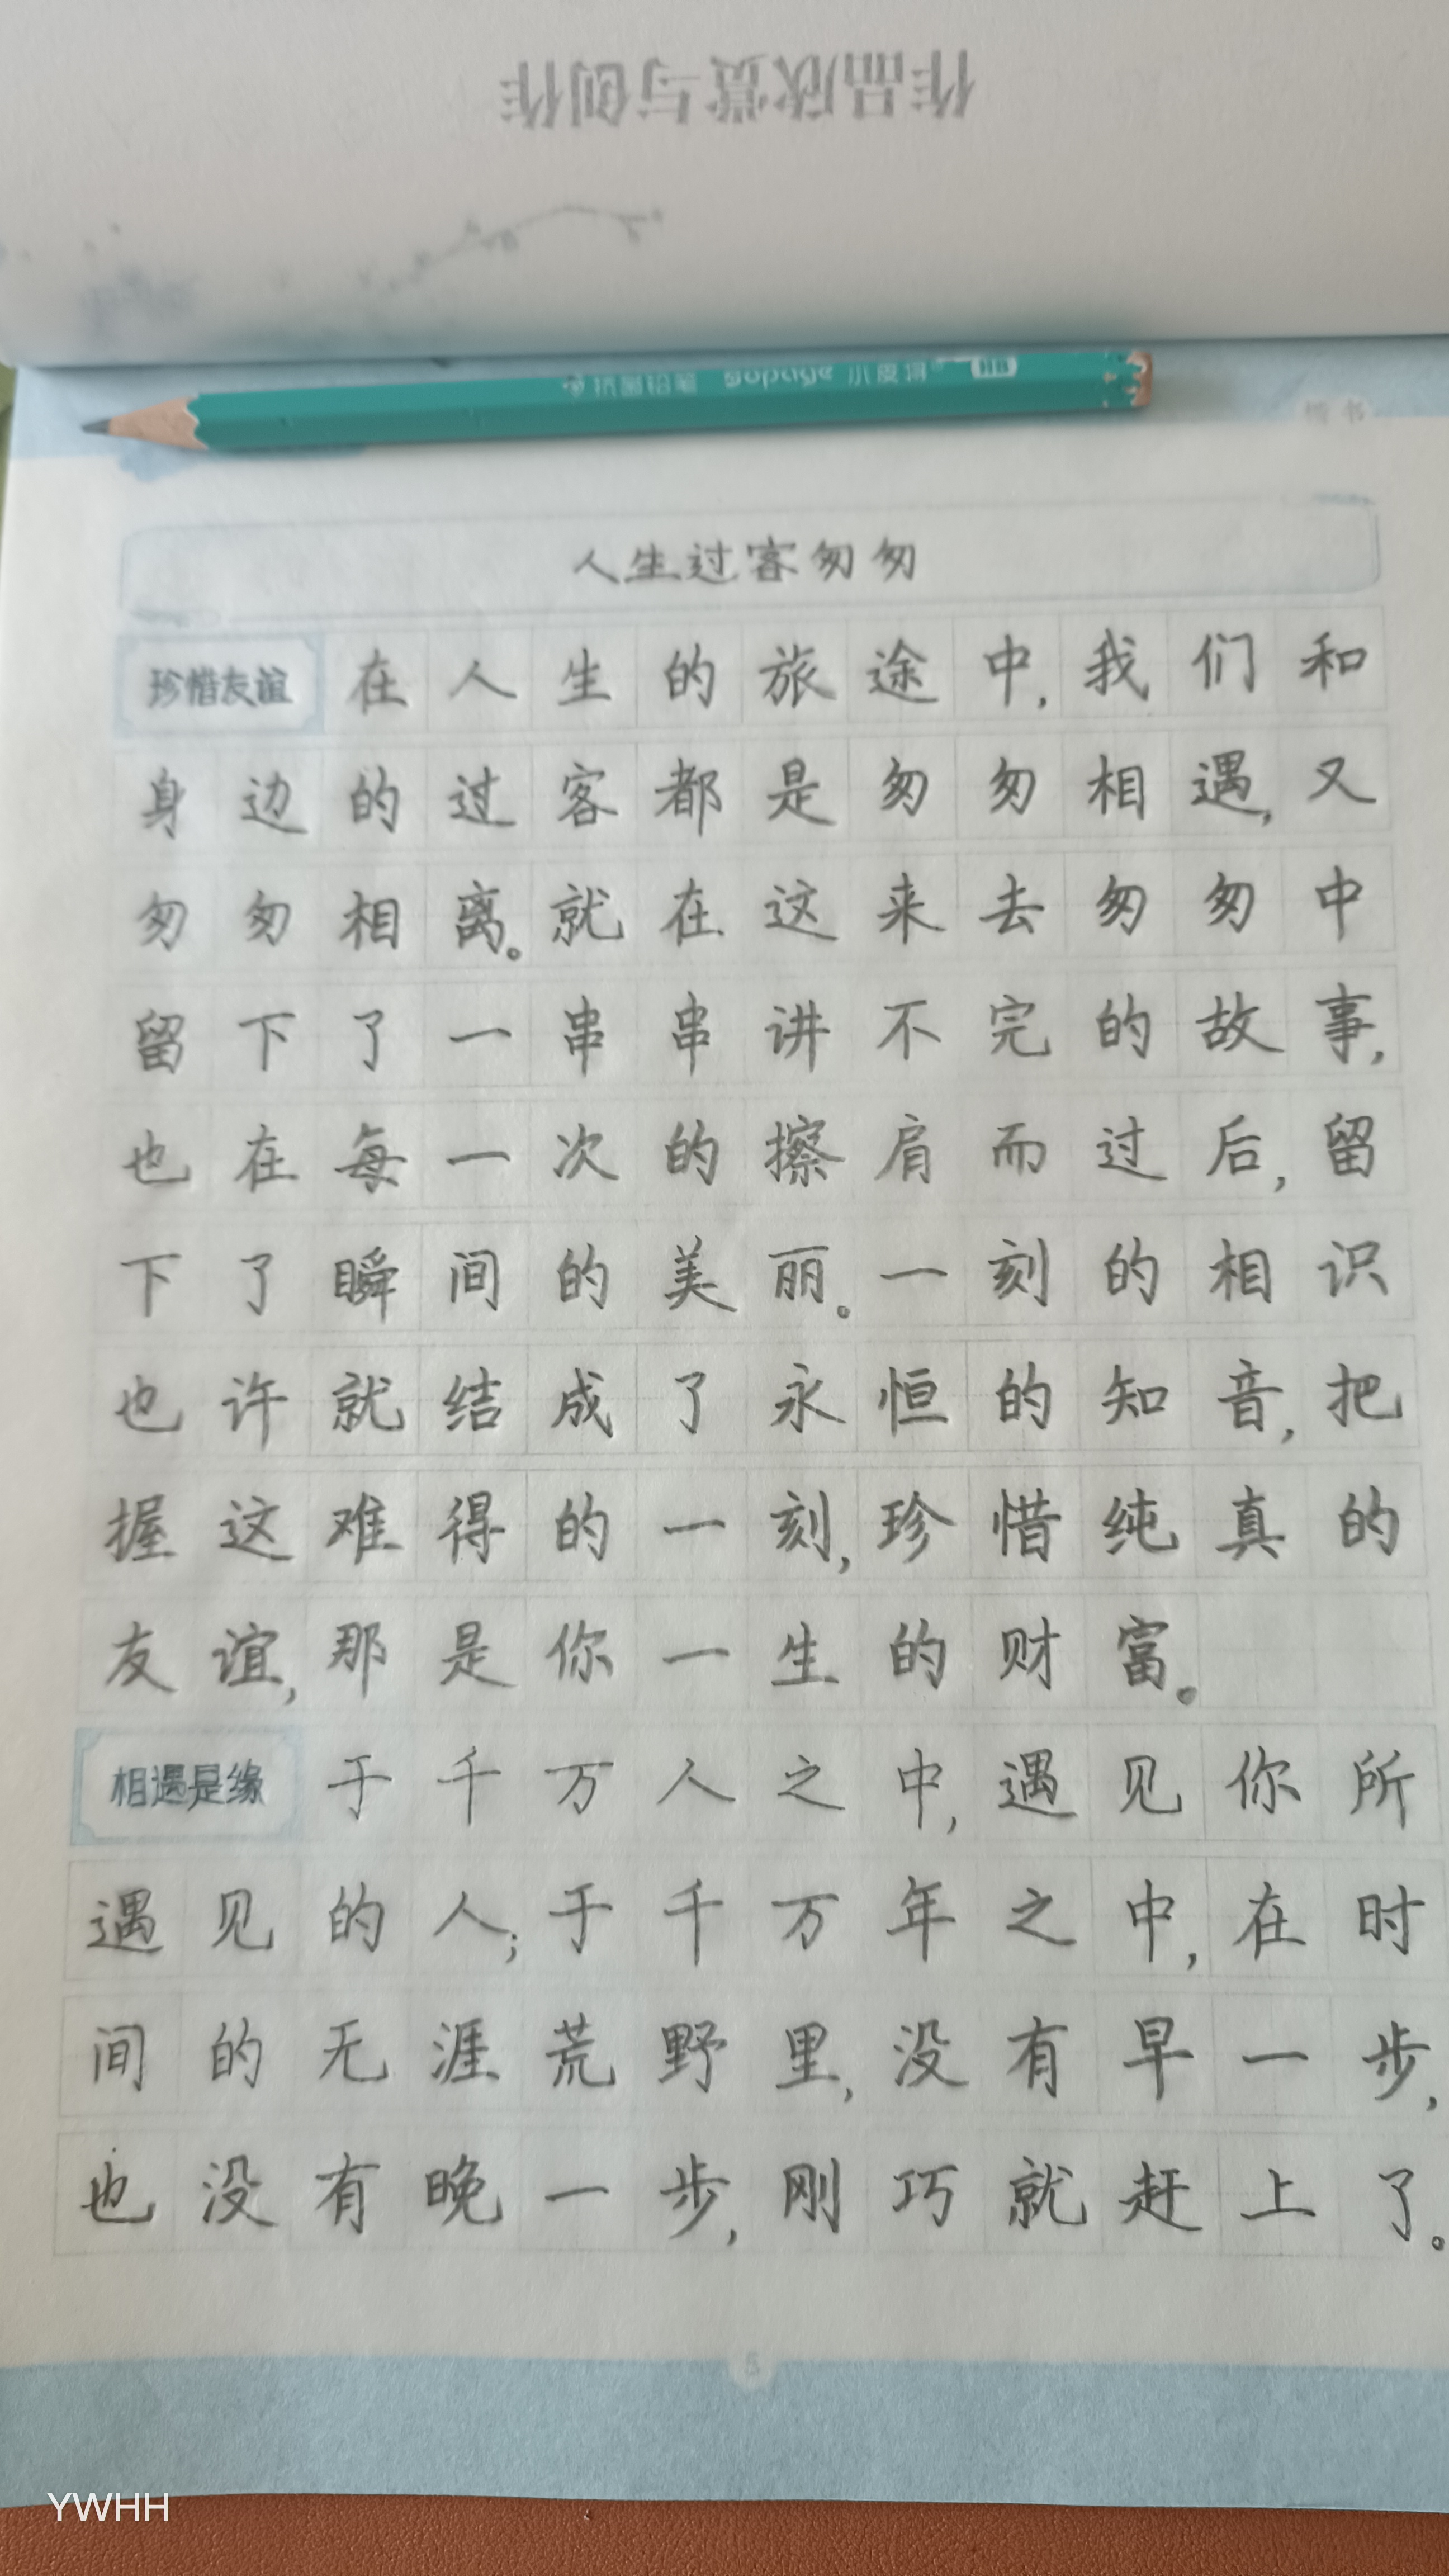 作品欣赏与创作
抗菌铅笔 Bopage 小皮得 HB
楷书
人生过客匆匆
珍惜友谊 在人生的旅途中,我们和
身边的过客都是匆匆相遇,又
匆匆相离。就在这来去匆匆中
留下了一串串讲不完的故事,
也在每一次的擦肩而过后,留
下了瞬间的美丽。一刻的相识
也许就结成了永恒的知音,把
握这难得的一刻,珍惜纯真的
友谊,那是你一生的财富。
相遇是缘 于千万人之中,遇见你所
遇见的人;于千万年之中,在时
间的无涯荒野里,没有早一步,
也没有晚一步,刚巧就赶上了。
5
YWHH